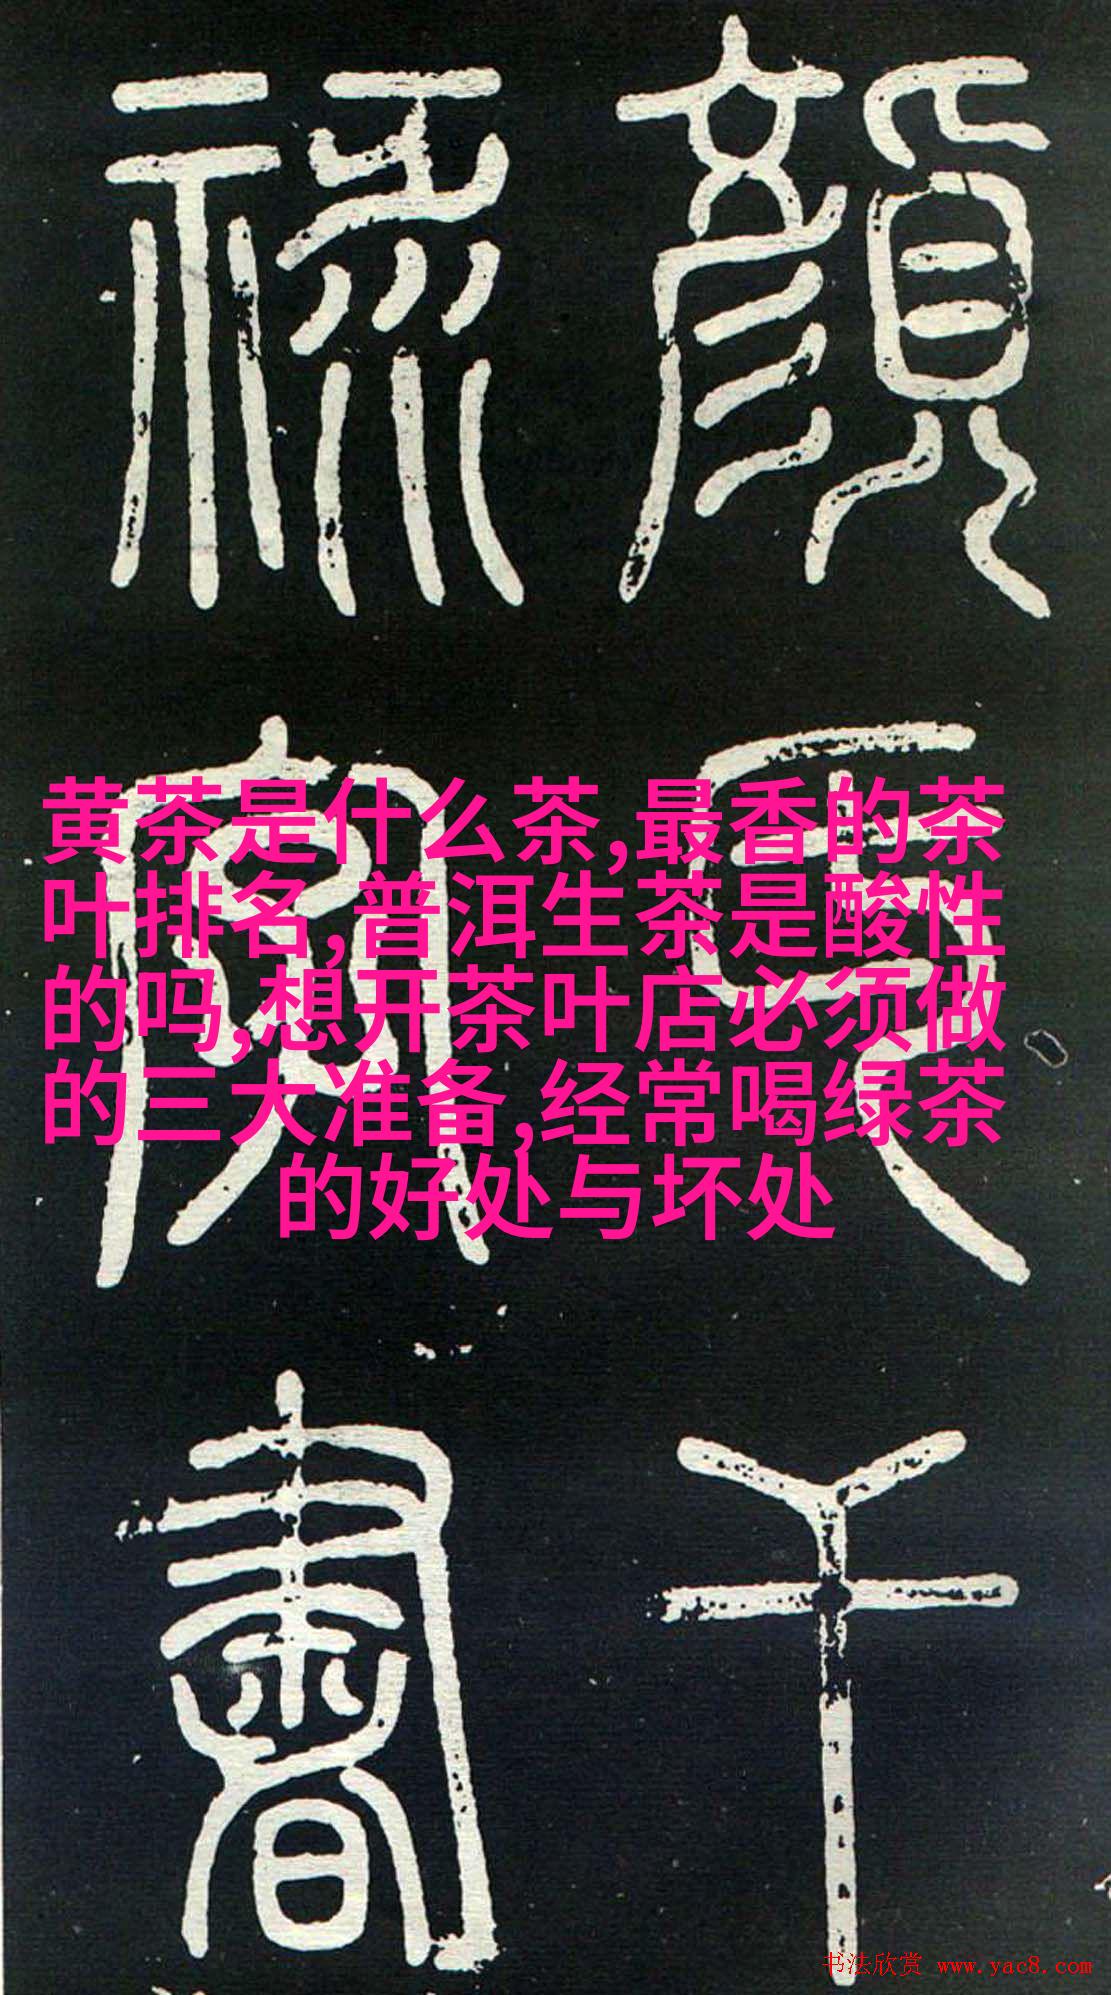 黄茶是什么茶,最香的茶
叶排名,普洱生茶是酸性
的吗,想开茶叶店必须做
的三大准备,经常喝绿茶
的好处与坏处
顏
氏
干
禄
寶
書
书法欣赏 www.yac8.com